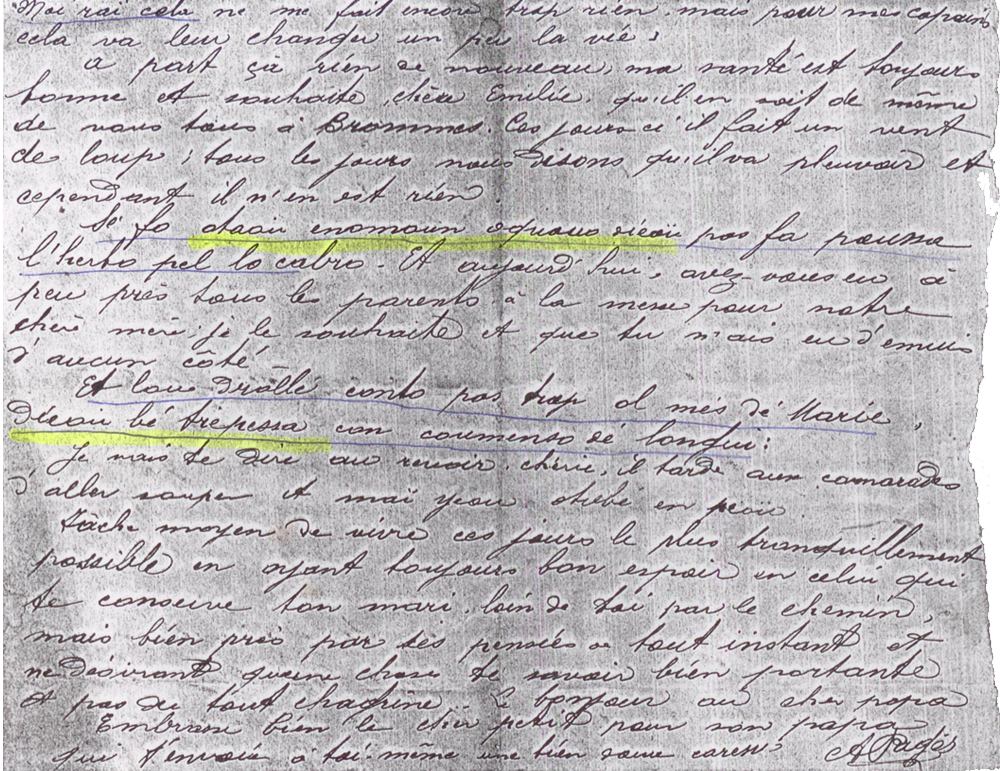 Moi rai cela ne me fait encore trop rien, mais pour mes copains,
cela va leur changer un peu la vie.
A part çà rien de nouveau, ma santé est toujours
bonne et souhaite, chère Emilie, qu'il en soit de même
de vous tous à Brommes. Ces jours ci il fait un vent
de loup, tous les jours nous disons qu'il va pleuvoir et
cependant il n'en est rien.
Sé fo otaou enomoun oquous diéou pas fa poussa
l'herbo pel lo cabro. Et aujourd'hui, avez-vous eu à
peu près tous les parents à la messe pour notre
chère mère, je le souhaite et que tu n'ais eu d'ennuis
d'aucun côté.
Et lou drolle conto pas trop ol més dé Marie,
diéou bé trépessa con coumenso dé longui.
Je vais te dire au revoir, chérie, il tarde aux camarades
d'aller souper et maï yeou otobé en péou.
Tâche moyen de vivre ces jours le plus tranquillement
possible en ayant toujours bon espoir en celui qui
te conserve ton mari, loin de toi par le chemin,
mais bien près par ses pensées à tout instant et
ne désirant qu'une chose te savoir bien portante
et pas du tout chagrine. Le bonjour au cher papa
Embrasse bien le cher petit pour son papa
qui t'envoie à toi-même une bien douce caresse
A Pagès